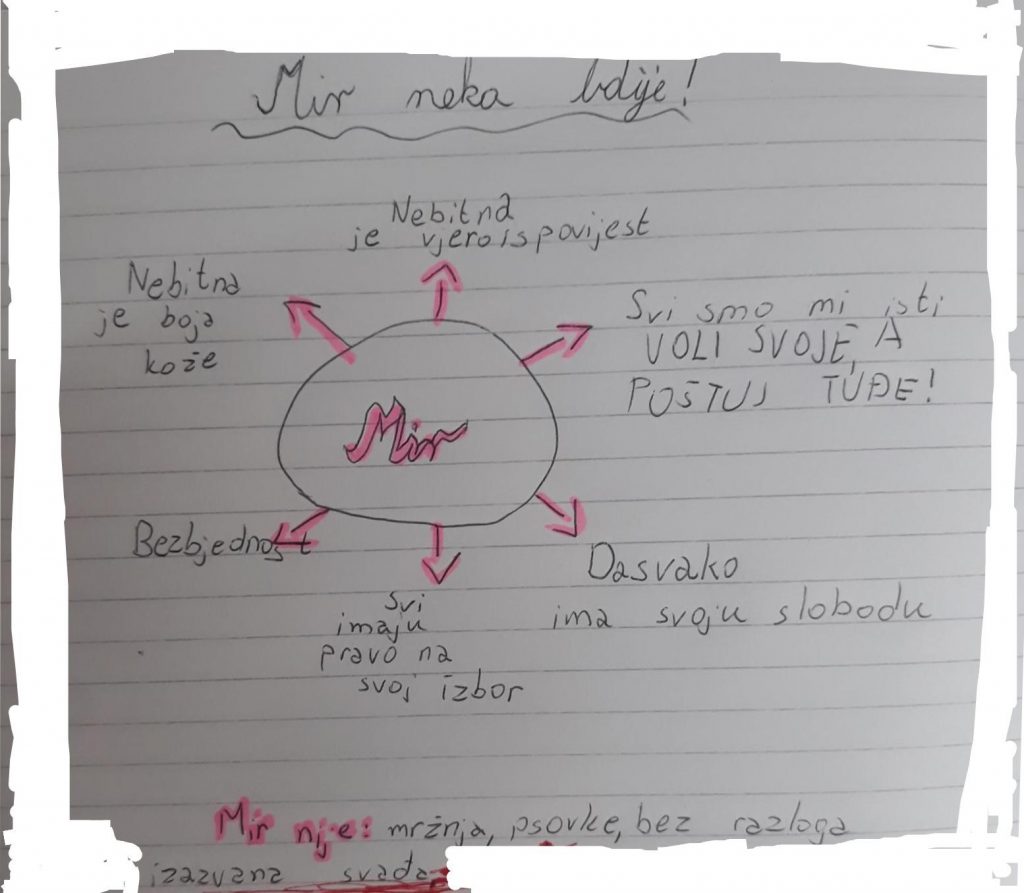 Mir neka bdije!
Nebitna
je vjeroispovijest
Nebitna
je boja
kože
Svi smo mi isti
VOLI SVOJE, A
POŠTUJ TUĐE!
Mir
Bezbjednost
Svi
imaju
pravo na
svoj izbor
Dasvako
ima svoju slobodu
Mir nije: mržnja, psovke, bez razloga
izazvana svađa